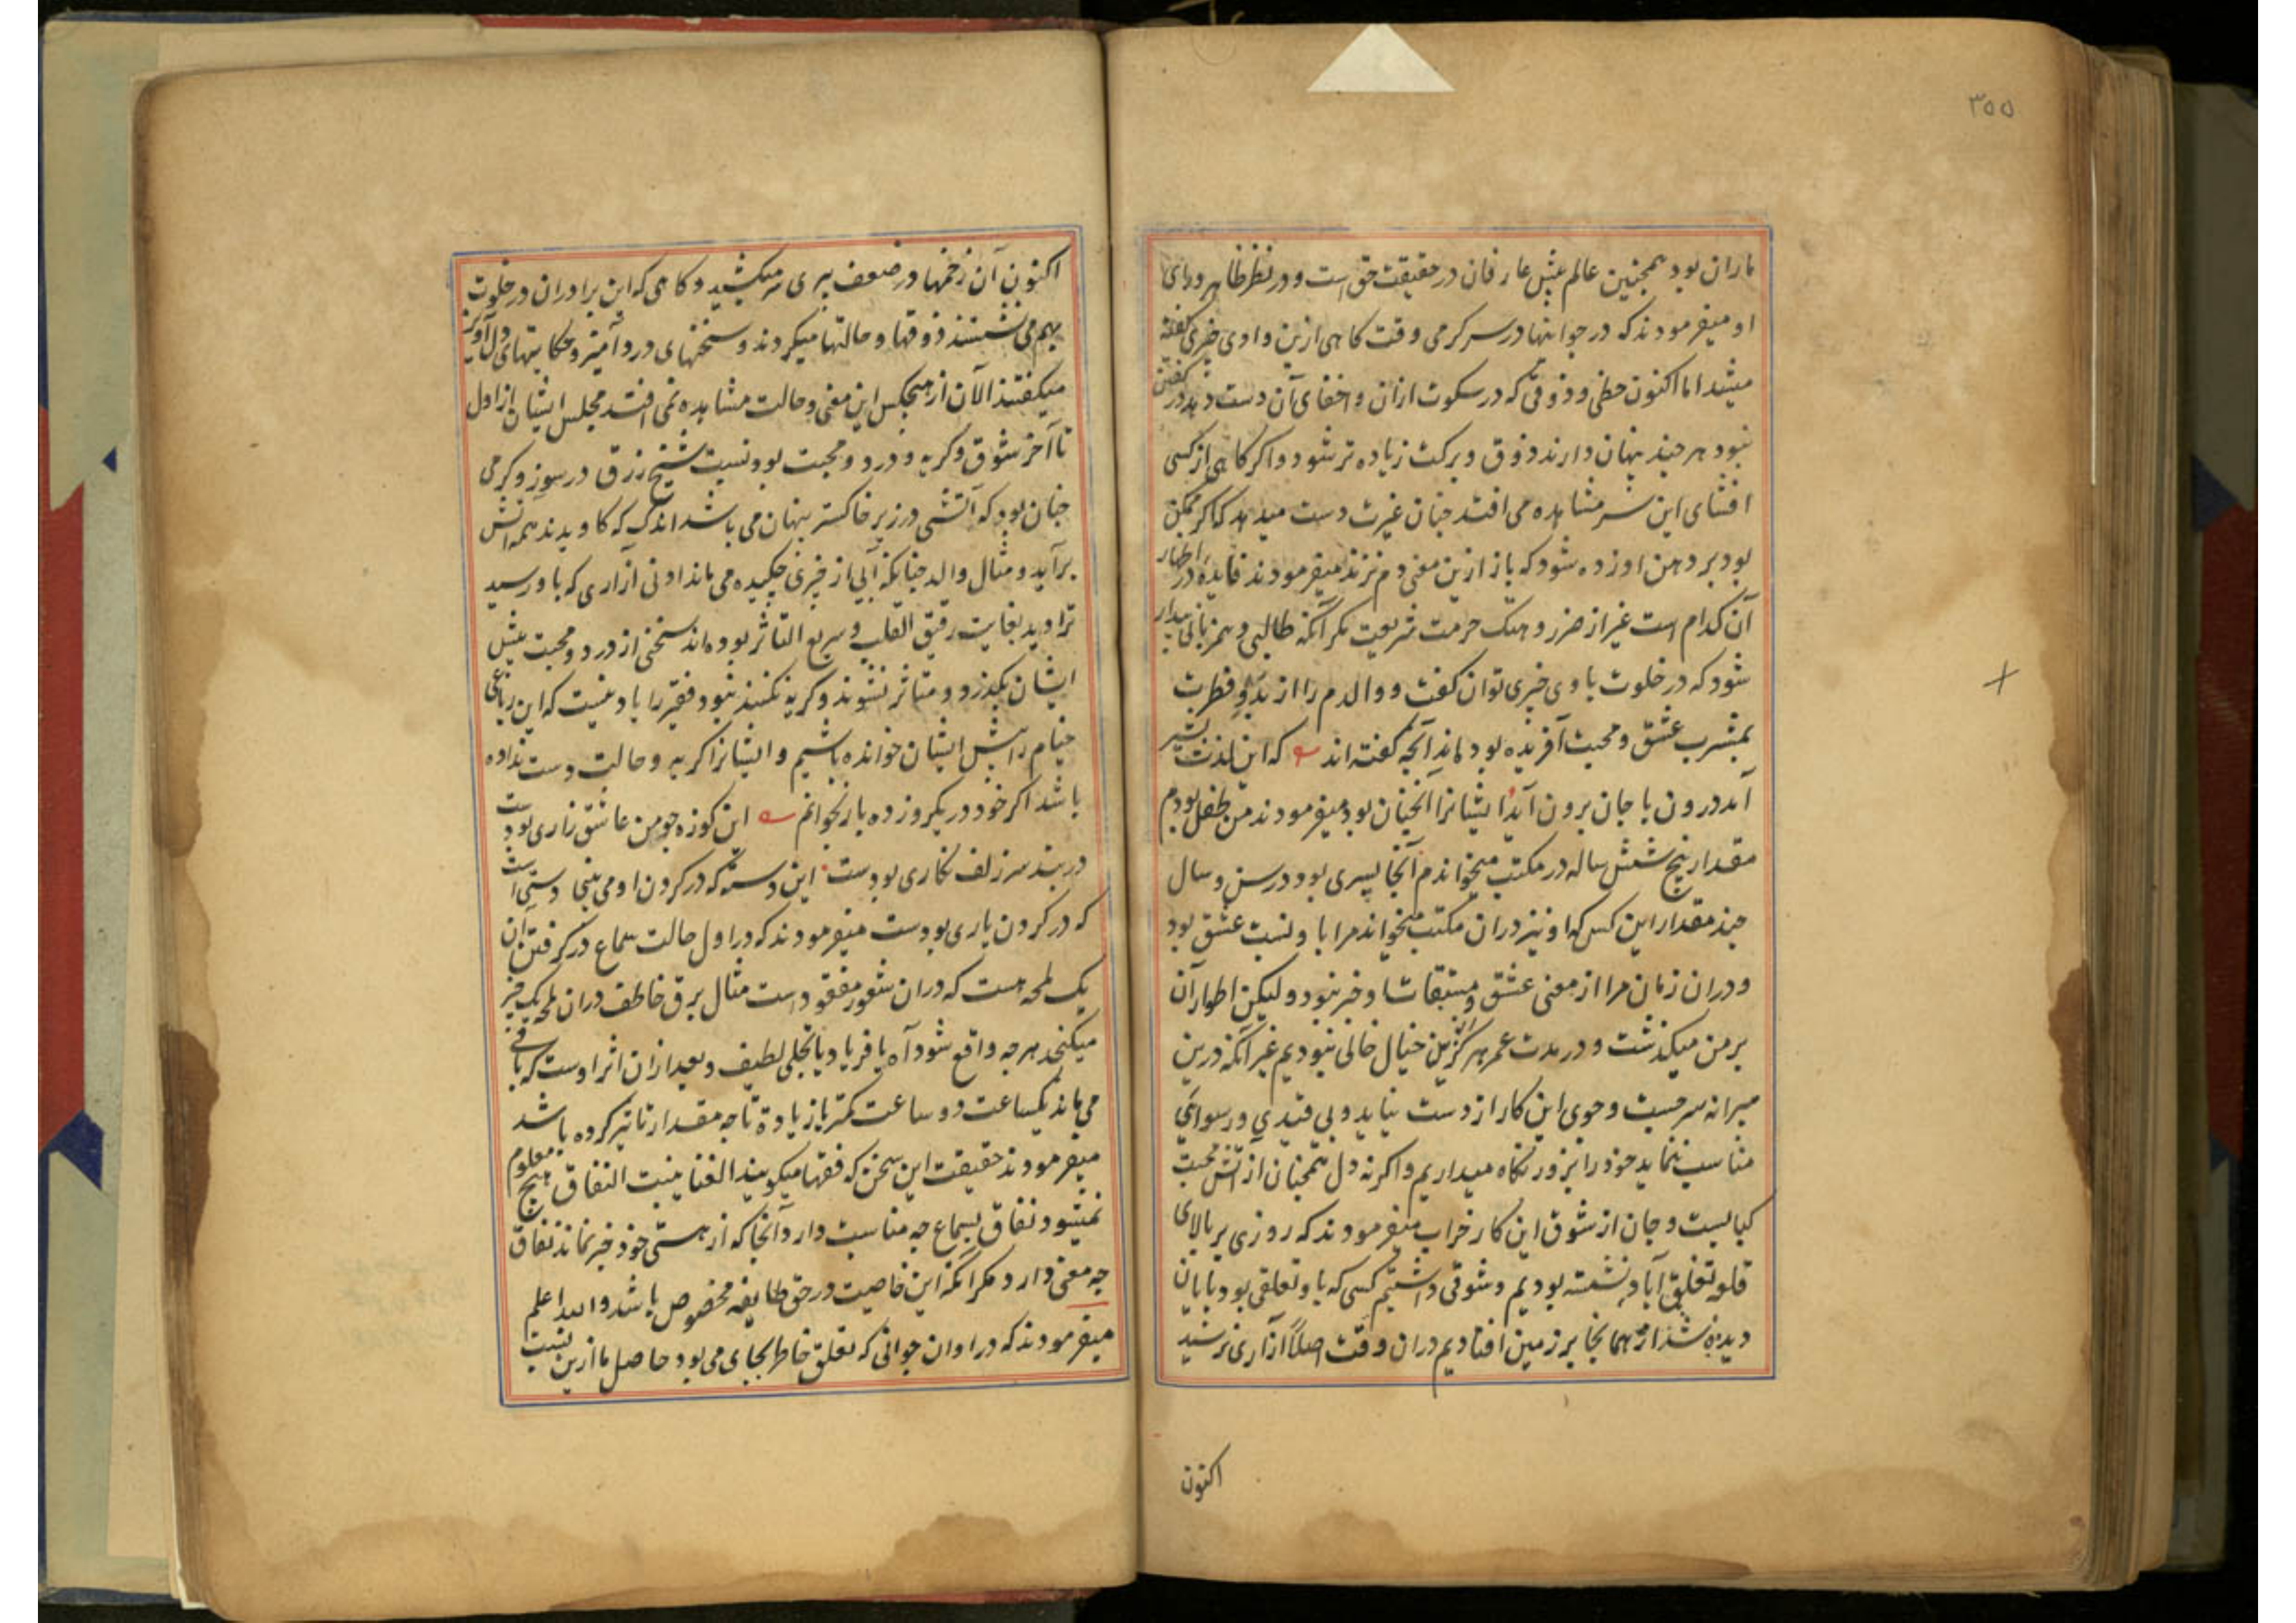 ۳۵۵
باران بود همچنین عالم پیش عارفان در حقیقت حق است و در نظر ظاهر ورای
او میفرمودند که در جوانیها در سرکرمی وقت کاهی ازین وادی چیزی کفته
میشد اما اکنون حظی و ذوقی که در سکوت ازان و اخفای آن دست دهد در کفتن
نبود هر چند پنهان دارند ذوق و برکت زیاده تر شود و اکر کاهی از کسی
افشای این سر مشاهده می افتد چنان غیرت دست میدهد که اکر ممکن
بود بر دهن او زده شود که باز ازین معنی دم نزند میفرمودند فایده در اظهار
آن کدام است غیر از ضرر و هتک حرمت شریعت مکر آنکه طالبی و همزبانی پیدا
شود که در خلوت با وی چیزی توان کفت و والدم را از بدو فطرت
بمشرب عشق و محبت آفریده بودماند آنچه کفته اند که این لذت بشیر
آمد درون با جان برون آید ایشانرا آنچنان بود میفرمودند من طفل بودم
مقدار پنج شش ساله در مکتب میخواندم آنجا پسری بود در سن و سال
چند مقدار این کس که او نیز دران مکتب میخواند مرا با او نسبت عشق بود
و دران زمان مرا از معنی عشق و خبر نبود و لیکن اطوار آن
بر من میکذشت و در مدت عمر هرکز ازین خیال خالی نبودیم غیر آنکه درین
میرانه سر حسیت و جوی این کار از دست نیاید و بی قیدی و رسوایی
مناسب ننماید خود را بزور نکاه میداریم و اکر نه دل همچنان از آتش محبت
کبابست و جان از شوق این کار خراب میفرمودند که روزی بر بالای
قلعه تغلق آباد نشسته بودیم و شوقی داشتیم کسی که با او تعلقی بود بپایان
دیده شد از همانجا بر زمین افتادیم دران وقت اصلاً آزاری نرسید
اکنون
اکنون آن زخمها در ضعف پیری سر میکشید و کاهی که این برادران در خلوت
بهم می نشستند ذوقها و حالتها میکردند و سخنهای درد آمیز و حکایتهای دل آویز
میکفتند الآن از هیچکس این معنی و حالت مشاهده نمی افتد مجلس ایشان از اول
تا آخر شوق و کریه و درد و محبت بود نسبت شیخ رزق در سوز و کرمی
چنان بود که آتشی در زیر خاکستر پنهان می باشد اندک که کاویدند همه آتش
برآید و مثال والد چنانکه آبی از چیزی چکیده می ماند ادنی آزاری که باو رسید
تراوید بغایت رقیق القلب و سریع التاثر بوده اند سخنی از درد و محبت پیش
ایشان بکذرد و متاثر نشوند و کریه نکنند نبود فقیر را یاد نیست که این رباعی
خیام را پیش ایشان خوانده باشیم و ایشانرا کریه و حالت دست نداده
باشد اکر خود در یکروز ده بار بخوانم این کوزه چو من عاشق زاری بودست
در بند سر زلف نکاری بودست این دسته که در کردن او می بینی دستی است
که در کردن یاری بودست میفرمودند که در اول حالت سماع در کرفتن آن
یک لمحه هست که دران شعور مفقود است مثال برق خاطف دران لمحه یک چیز
میکنجد هر چه واقع شود آه یا فریاد یا تجلی لطیف و بعد ازان اثر اوست که باقی
می ماند یکساعت دو ساعت کمتر یا زیادة تا چه مقدار تاثیر کرده باشد
میفرمودند حقیقت این سخن که فقها میکویند الغنا ینبت النفاق هیچ معلوم
نمیشود نفاق بسماع چه مناسبت دارد آنجا که از هستی خود خبر نماند نفاق
چه معنی دارد مکر آنکه این خاصیت در حق طایفه مخصوص باشد والله اعلم
میفرمودند که در اوان جوانی که تعلق خاطر بجای می بود حاصل ما ازین نسبت